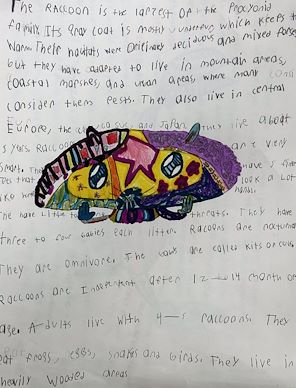 The Raccoon is the largest of the Procyonid
family. Its gray coat is mostly underfur which keeps t
warm. Their habitats were originary deciduous and mixed fores
but they have adapted to live in mountain areas,
coastal marshes, and urban areas, where many
consider them Pests. They also live in central
Europe, the and Japan. They live about
5 years. Raccoons are very
smart. The have 5 five
toes that look a lot
like hands.
The have little threats. They have
three to four babies each litter. Raccons are nocturnal
They are omnivore. The babies are called kits or cubs.
Raccoons are Independent after 12 to 14 month of
age. Adults live with 4-5 raccoons. They
eat frogs, eggs, snakes and birds. They live in
heavily wooded areas